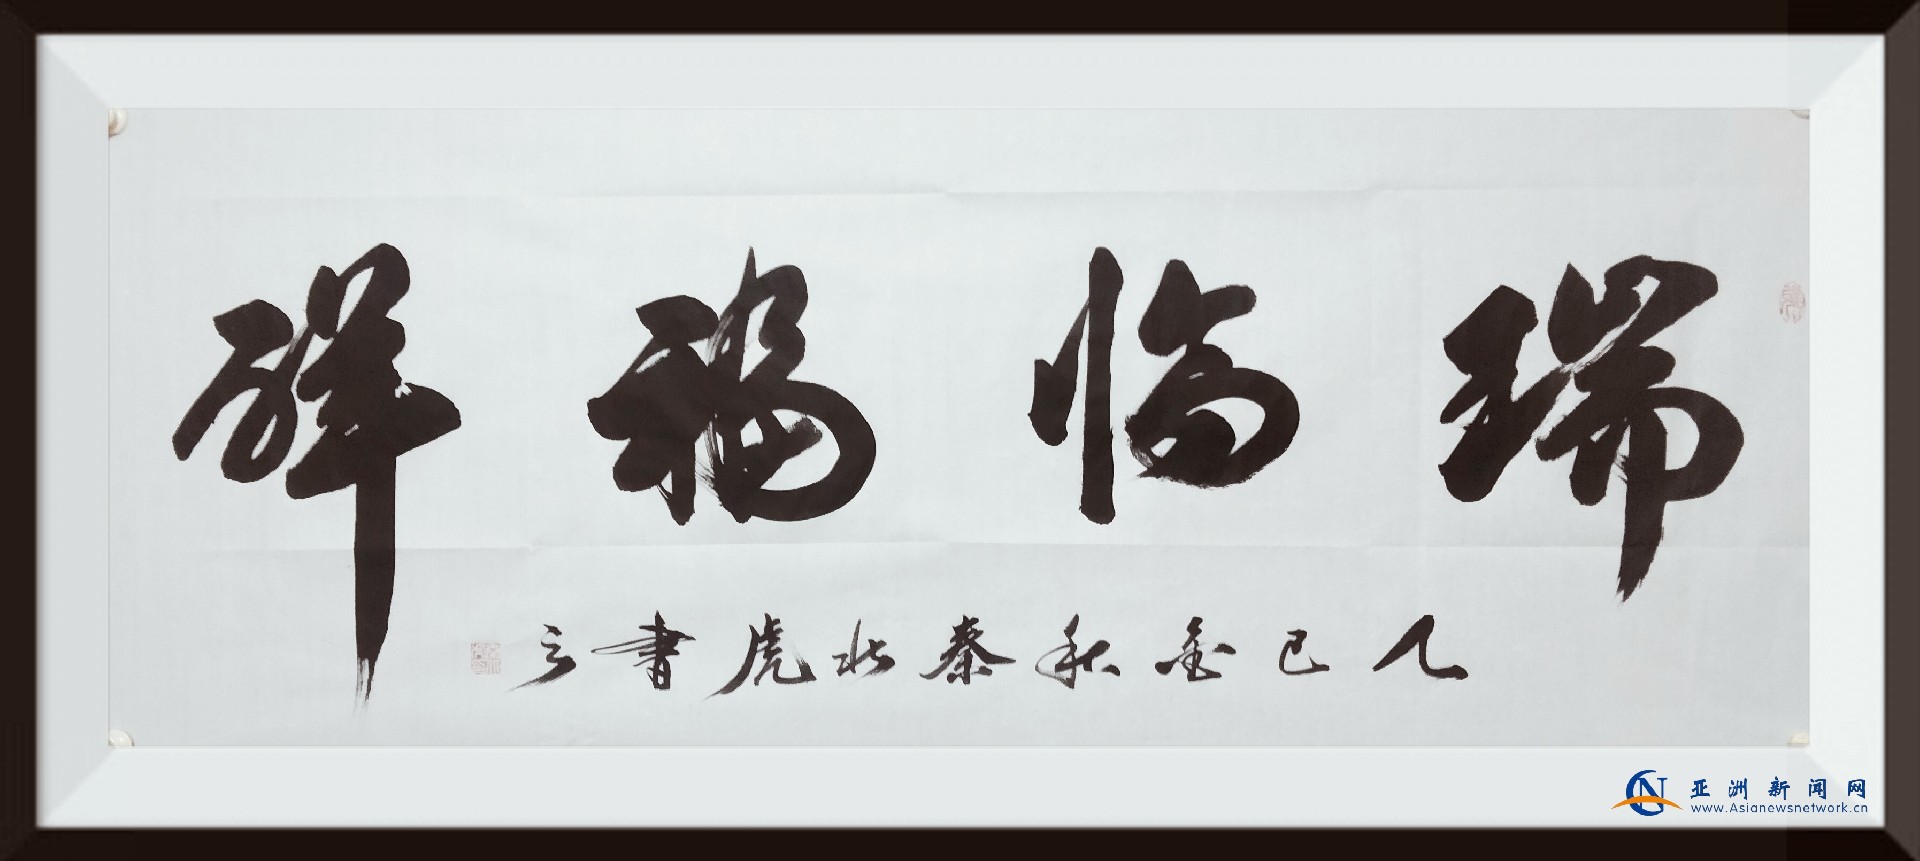 瑞临福祥
乙巳金秋秦北虎书之
亚洲新闻网
www.Asianewsnetwork.cn